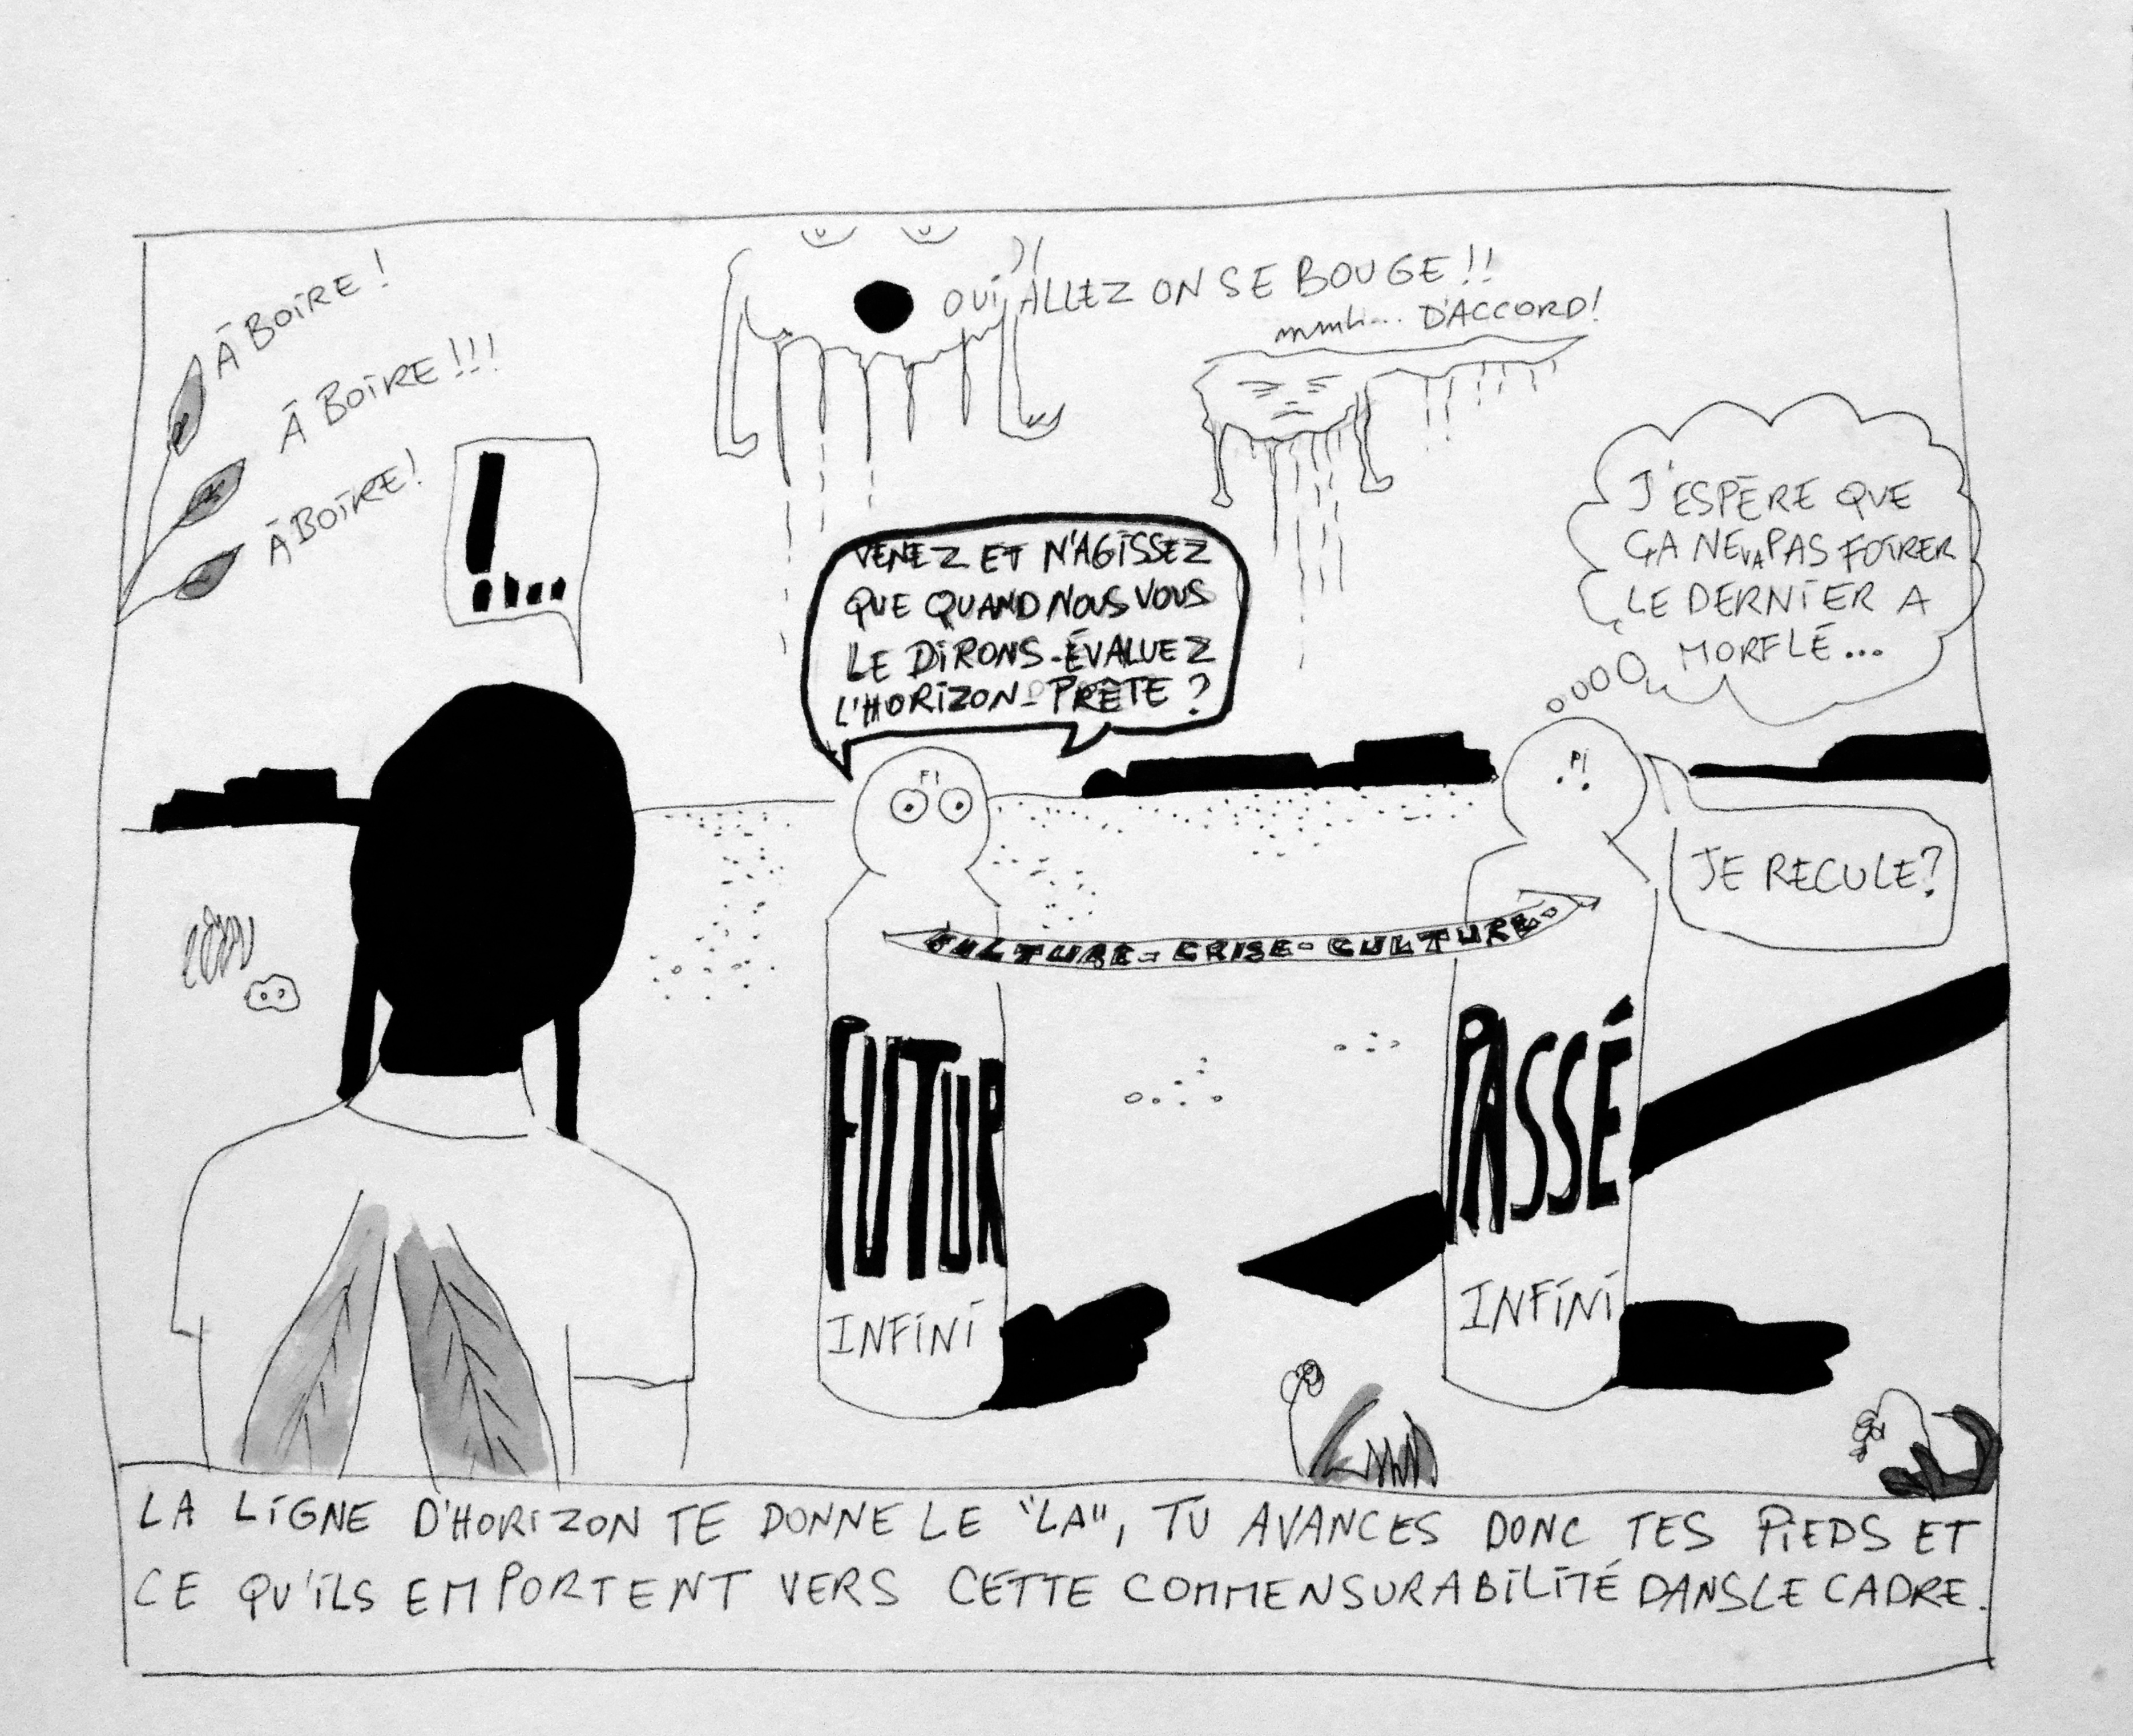 À BOIRE !
À BOIRE !!!
À BOIRE !
!...
OUI, ALLEZ ON SE BOUGE !!
mmh... D'ACCORD !
VENEZ ET N'AGISSEZ
QUE QUAND NOUS VOUS
LE DIRONS - ÉVALUEZ
L'HORIZON - PRÊTE ?
J'ESPÈRE QUE
ÇA NE VA PAS FOIRER
LE DERNIER A
MORFLÉ ...
JE RECULE ?
CULTURE - CRISE - CULTURE -
FUTUR
INFINI
PASSÉ
INFINI
LA LIGNE D'HORIZON TE DONNE LE "LA", TU AVANCES DONC TES PIEDS ET
CE QU'ILS EMPORTENT VERS CETTE COMMENSURABILITÉ DANS LE CADRE.